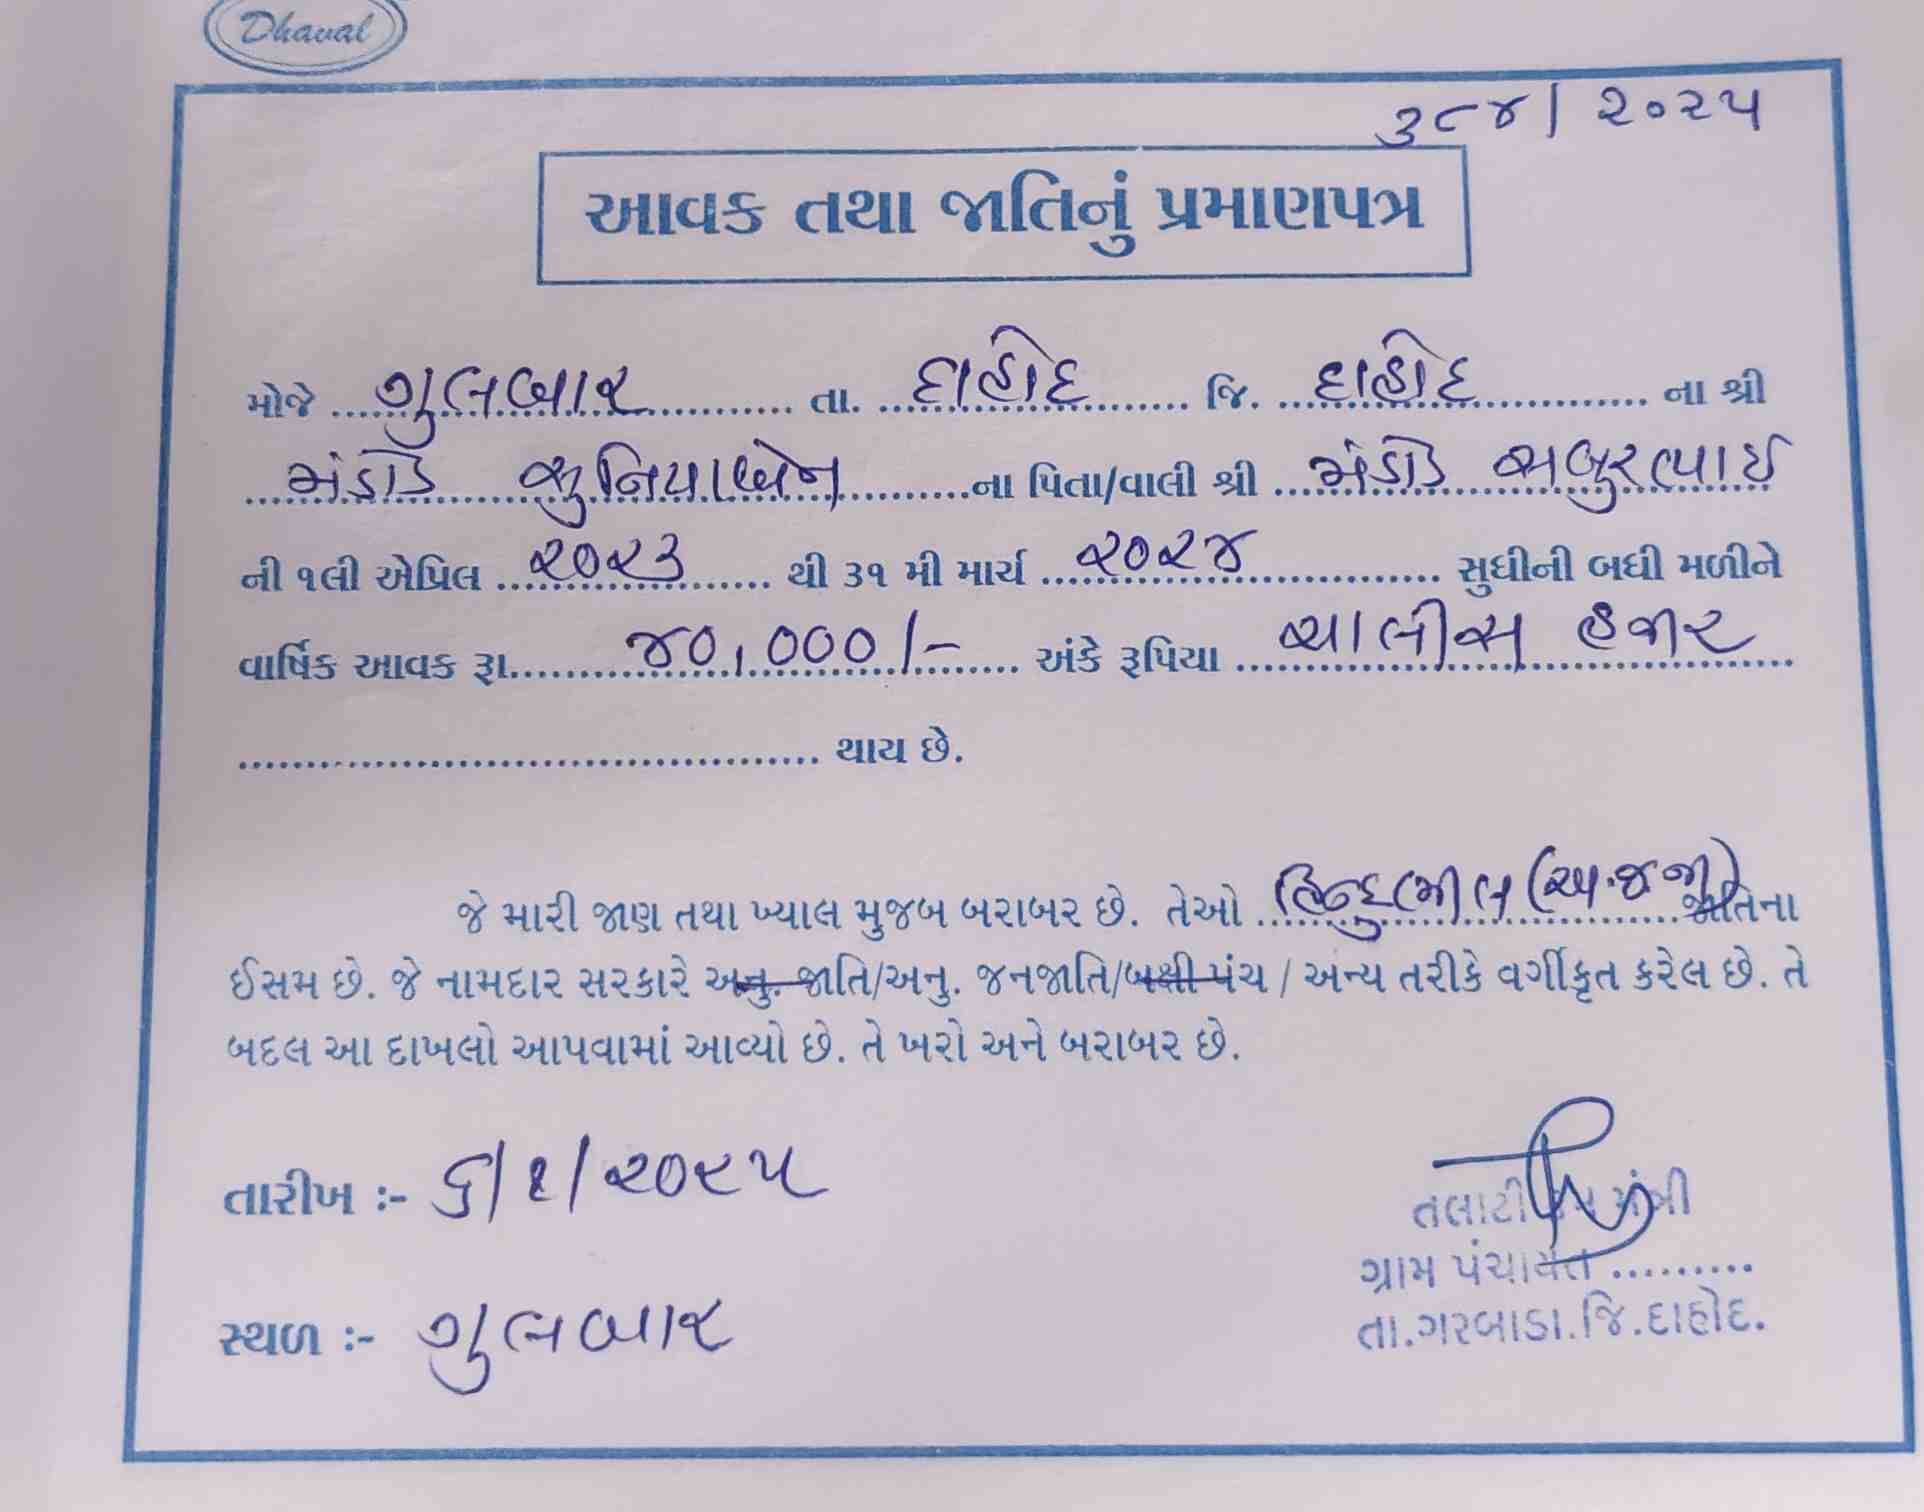 Dhaval
૩૮૪/૨૦૨૫
આવક તથા જાતિનું પ્રમાણપત્ર
મોજે ગુલબાર તા. દાહોદ જિ. દાહોદ ના શ્રી
મંડોડ સુનિયાબેન ના પિતા/વાલી શ્રી મંડોડ અબુરભાઈ
ની ૧લી એપ્રિલ ૨૦૨૩ થી ૩૧ મી માર્ચ ૨૦૨૪ સુધીની બધી મળીને
વાર્ષિક આવક રૂા. ૪૦,૦૦૦/- અંકે રૂપિયા ચાલીસ હજાર
થાય છે.
જે મારી જાણ તથા ખ્યાલ મુજબ બરાબર છે. તેઓ હિન્દુ ભીલ (અ.જ.જા) જાતિના
ઈસમ છે. જે નામદાર સરકારે અનુ. જાતિ/અનુ. જનજાતિ/બક્ષી પંચ / અન્ય તરીકે વર્ગીકૃત કરેલ છે. તે
બદલ આ દાખલો આપવામાં આવ્યો છે. તે ખરો અને બરાબર છે.
તારીખ :- ૬/૧/૨૦૨૫
તલાટી કમ મંત્રી
ગ્રામ પંચાયત .........
તા.ગરબાડા.જિ.દાહોદ.
સ્થળ :- ગુલબાર